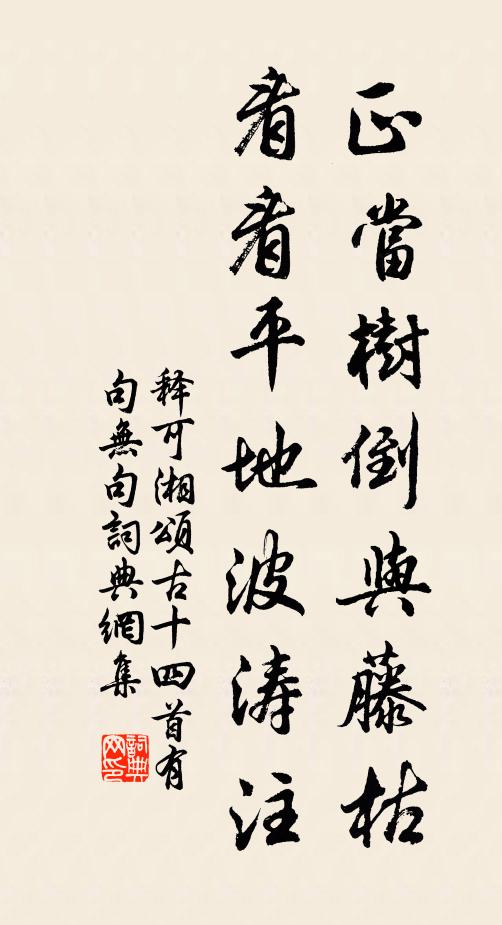 正當樹倒與藤枯
看看平地波涛注
释可湘頌古十四首有
句無句詞典網集
詞典網印